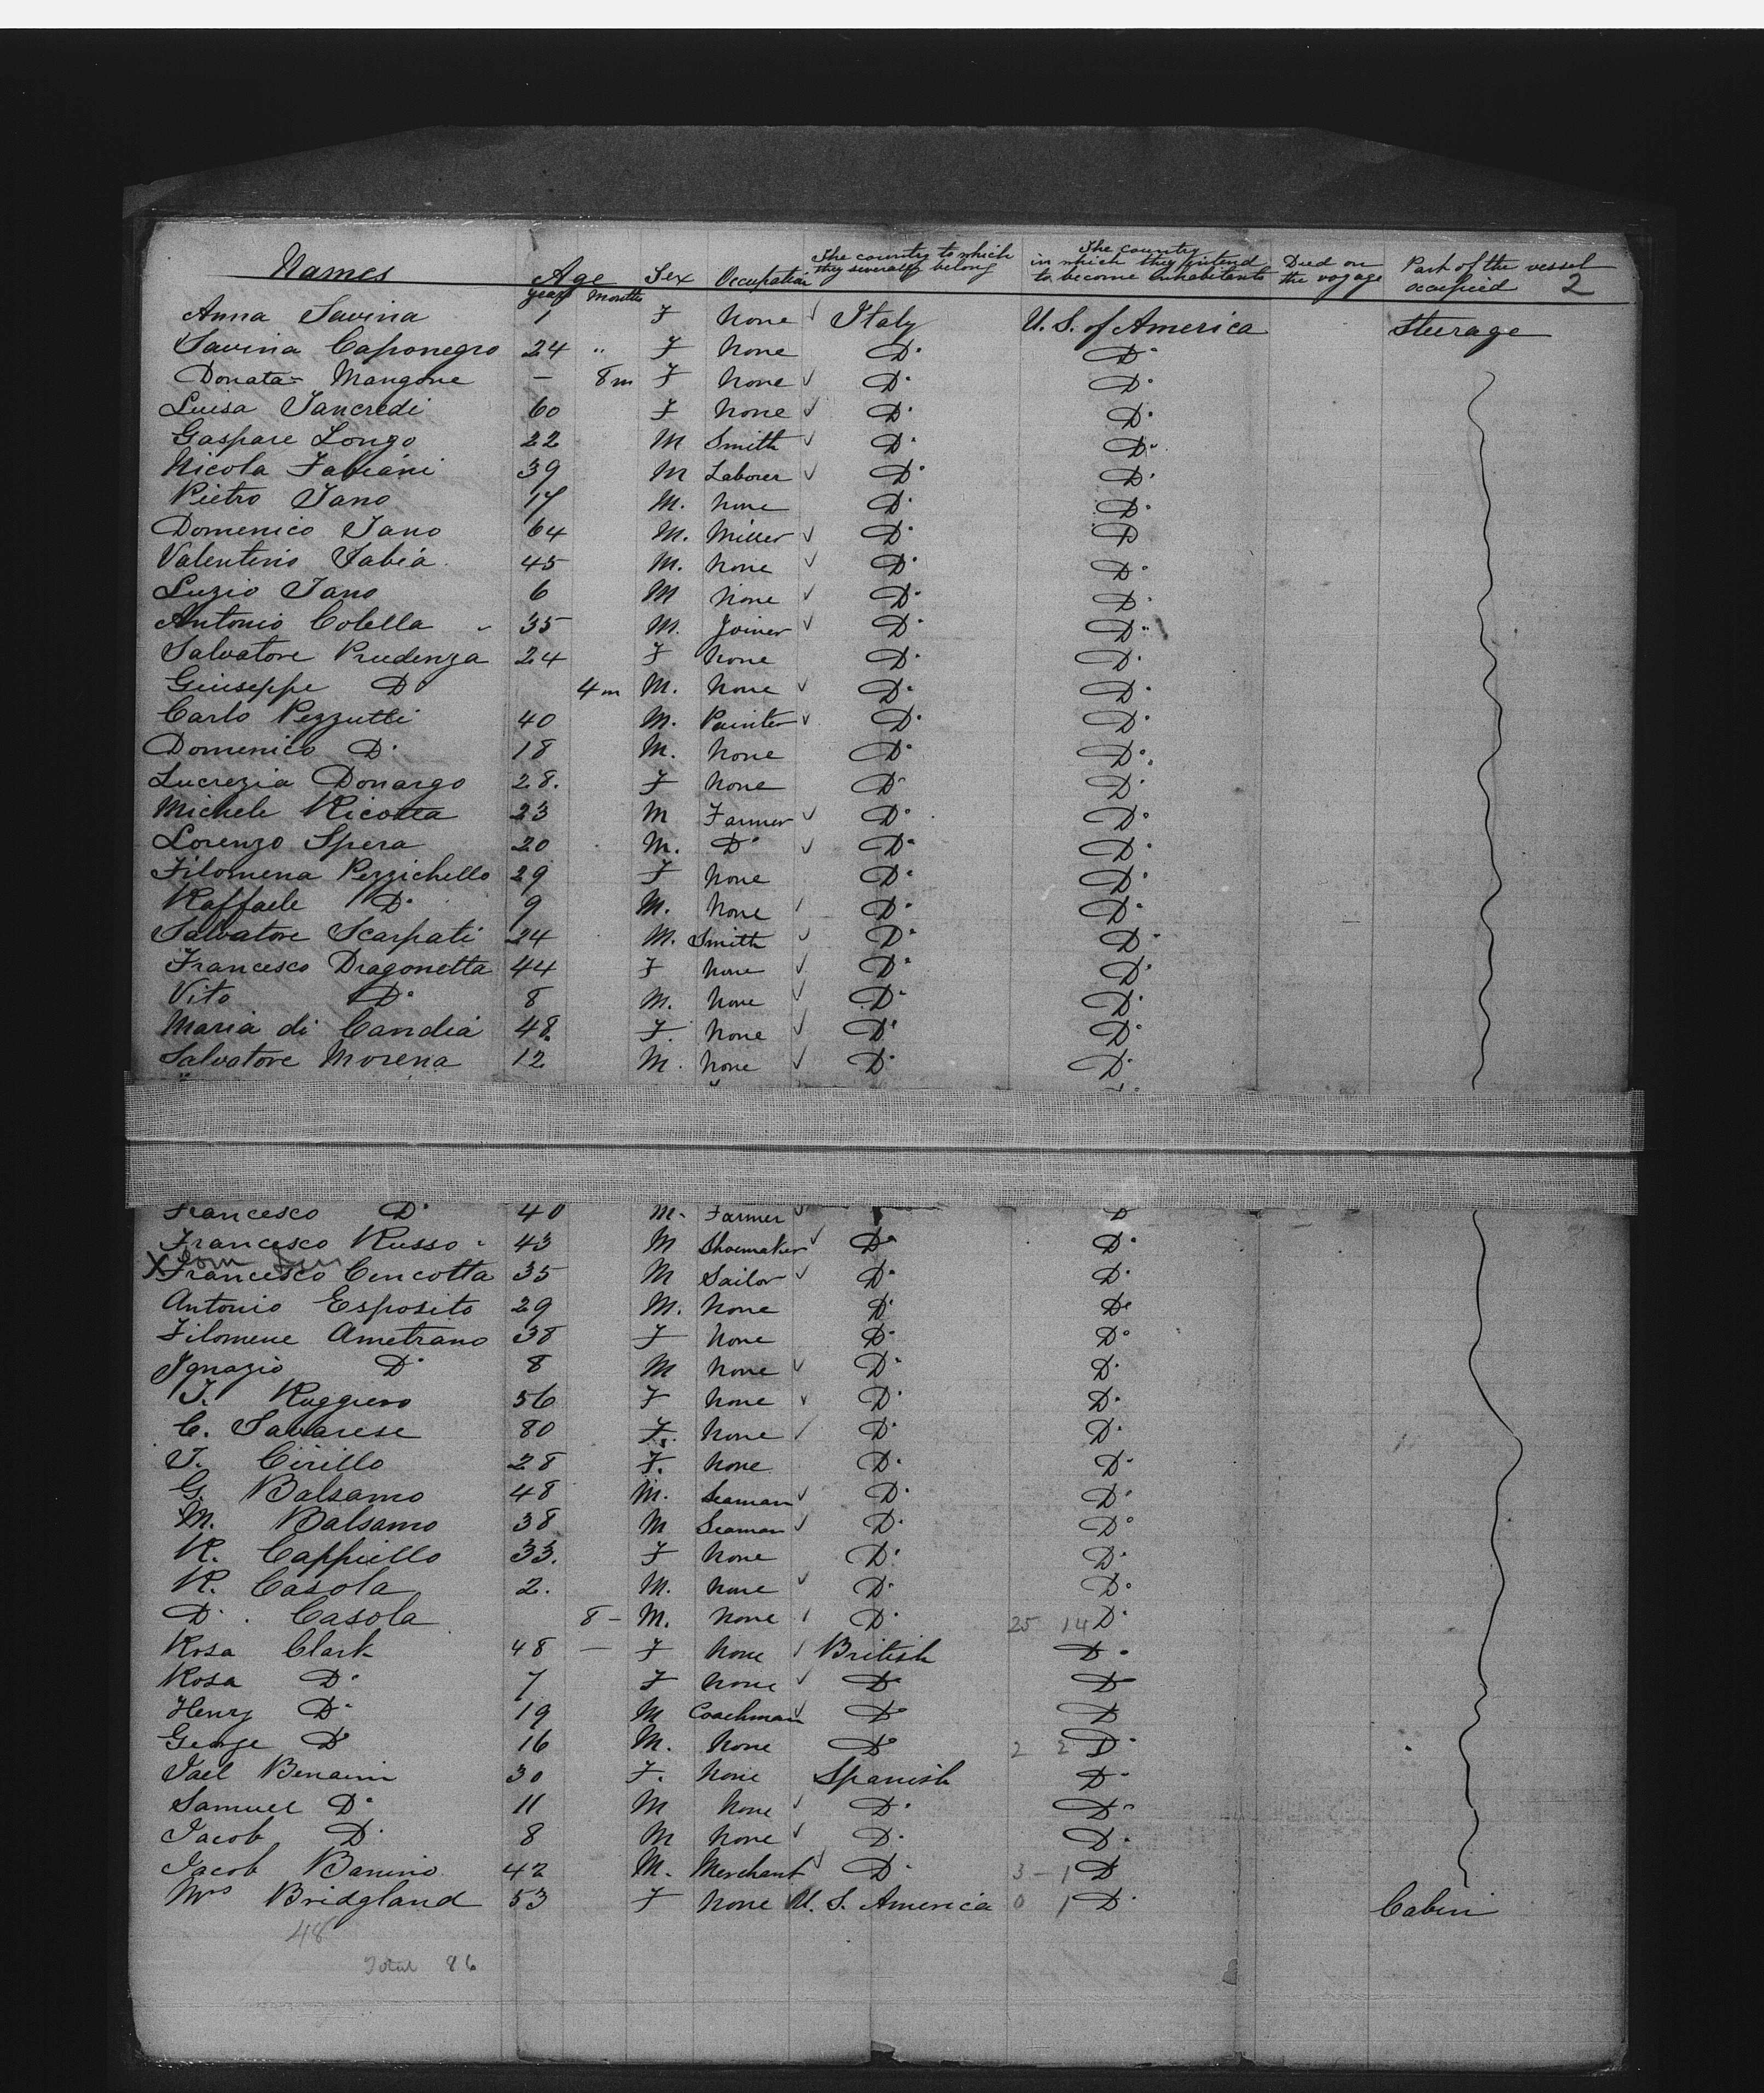 Names Age years Months Sex Occupation The country to which they severally belong The country in which they intend to become inhabitants Died on the voyage Part of the vessel occupied 2
Anna Savina 1 F None ✓ Italy U. S. of America Steerage
Savina Caponegro 24 " F None Do Do
Donata Mangone — 8m F None ✓ Do Do
Luisa Tancredi 60 F None ✓ Do Do
Gaspare Longo 22 M Smith ✓ Do Do
Nicola Fabiani 39 M Laborer ✓ Do Do
Pietro Iano 17 M. None Do Do
Domenico Iano 64 M. Miller ✓ Do Do
Valentino Fabia 45 M. None ✓ Do Do
Luzio Iano 6 M None ✓ Do Do
Antonio Colella 35 M. Joiner ✓ Do Do
Salvatore Prudenza 24 F None Do Do
Giuseppe Do 4m M. None ✓ Do Do
Carlo Pezzutti 40 M. Painter ✓ Do Do
Domenico Do 18 M. None Do Do
Lucrezia Donargo 28. F None Do Do
Michele Ricotta 23 M Farmer ✓ Do Do
Lorenzo Spera 20 M. Do ✓ Do Do
Filomena Pezzichello 29 F None Do Do
Raffaele Do 9 M. None Do Do
Salvatore Scarpati 24 M. Smith ✓ Do Do
Francesco Dragonetta 44 F None ✓ Do Do
Vito Do 8 M. None ✓ Do Do
Maria di Candia 48 F. None ✓ Do Do
Salvatore Morena 12 M. None ✓ Do Do
Francesco Do 40 M. Farmer ✓ Do
Francesco Russo 43 M Shoemaker ✓ Do Do
X Francesco Cincotta 35 M Sailor ✓ Do Do
Antonio Esposito 29 M. None Do Do
Filomene Ametrano 38 F None Do Do
Ignazio Do 8 M None ✓ Do Do
T. Ruggiero 56 F None ✓ Do Do
C. Savarese 80 F. None Do Do
T. Cirillo 28 F. None Do Do
G. Balsamo 48 M. Seaman ✓ Do Do
M. Balsamo 38 M Seaman ✓ Do Do
R. Cappiello 33. F None Do Do
R. Casola 2. M. None ✓ Do Do
D. Casola 8 – M. None Do 25 14 Do
Rosa Clark 48 — F None British Do
Rosa Do 7 F None ✓ Do Do
Henry Do 19 M Coachman ✓ Do Do
George Do 16 M. None Do 2 2 Do
Jael Benaim 30 F. None Spanish Do
Samuel Do 11 M None ✓ Do Do
Jacob Do 8 M None ✓ Do Do
Jacob Banino 42 M. Merchant ✓ Do 3 – 1 Do
Mrs Bridgland 53 F None U. S. America 0 1 Do Cabin
48
Total 86